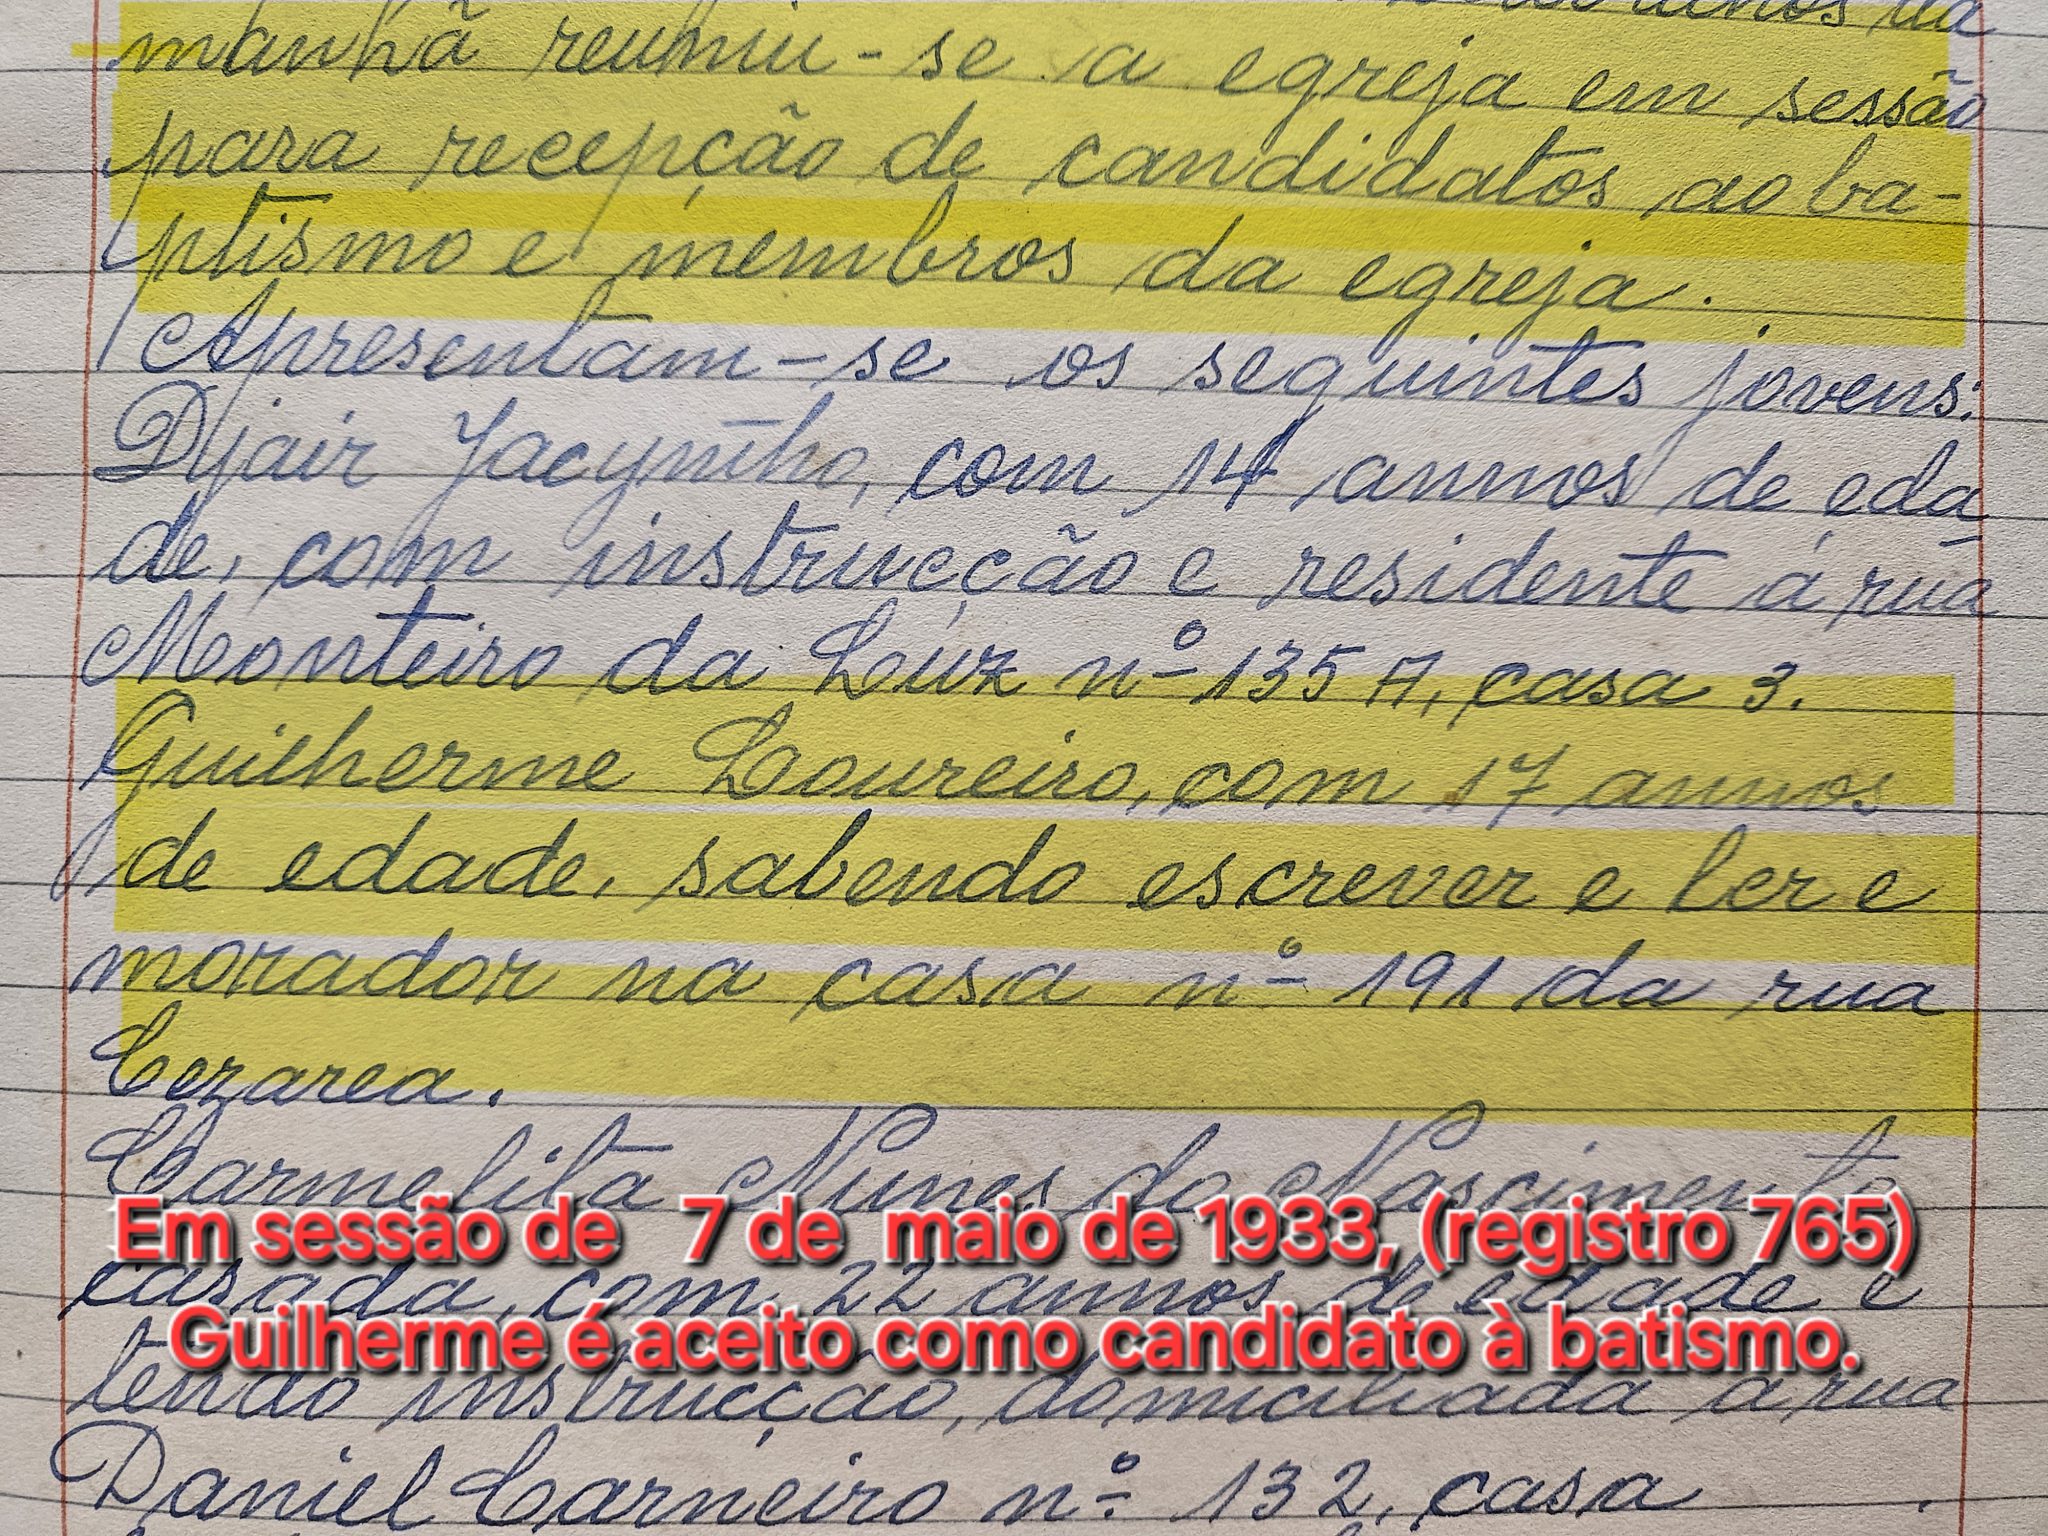 manhã reuniu-se a egreja em sessão
para recepção de candidatos ao ba-
ptismo e membros da egreja.
Apresentam-se os seguintes jovens:
Djair Jacyntho, com 14 annos de eda
de, com instrucção e residente á rua
Monteiro da Luz nº 135 A, casa 3.
Guilherme Loureiro, com 17 annos
de edade, sabendo escrever e ler e
morador na casa nº 191 da rua
Cezarea.
Carmelita Nunes do Nascimento,
Em sessão de 7 de maio de 1933, (registro 765)
casada, com 22 annos de edade e
Guilherme é aceito como candidato à batismo.
tendo instrucção, domiciliada a rua
Daniel Carneiro nº 132, casa